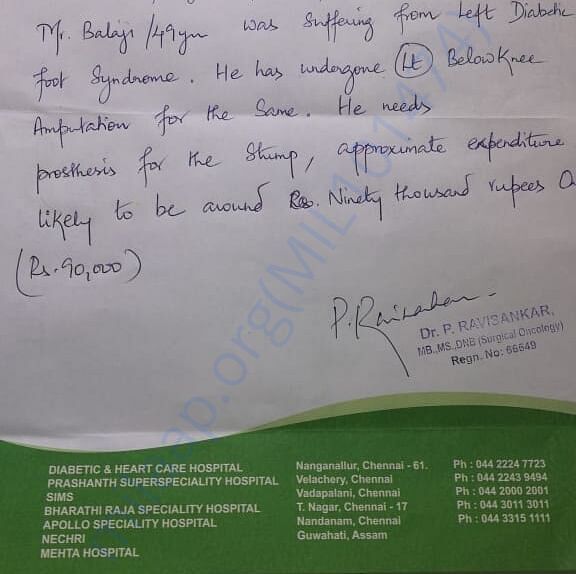 Mr. Balaji /49yrs was suffering from Left Diabetic
foot Syndrome. He has undergone Lt Below Knee
Amputation for the Same. He needs
prosthesis for the Stump, approximate expenditure
likely to be around Rs. Ninety thousand rupees O
(Rs. 90,000)
P. Ravisankar
Dr. P. RAVISANKAR,
MB.,MS.,DNB (Surgical Oncology)
Regn. No: 66649
DIABETIC & HEART CARE HOSPITAL Nanganallur, Chennai - 61. Ph : 044 2224 7723
PRASHANTH SUPERSPECIALITY HOSPITAL Velachery, Chennai Ph : 044 2243 9494
SIMS Vadapalani, Chennai Ph : 044 2000 2001
BHARATHI RAJA SPECIALITY HOSPITAL T. Nagar, Chennai - 17 Ph : 044 3011 3011
APOLLO SPECIALITY HOSPITAL Nandanam, Chennai Ph : 044 3315 1111
NECHRI Guwahati, Assam
MEHTA HOSPITAL